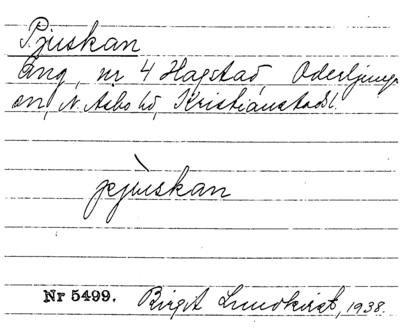 Pjuskan
Äng, nr 4 Hagstad, Oderljunga
sn, N. Åsbo hd, Kristianstads l.
pjùskan
Nr 5499. Birgit Lundkvist, 1938.